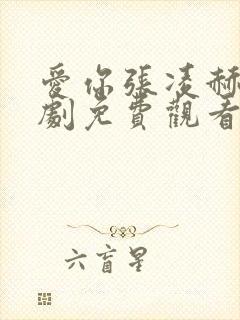 愛你張凌赫
劇免費觀看
六盲星